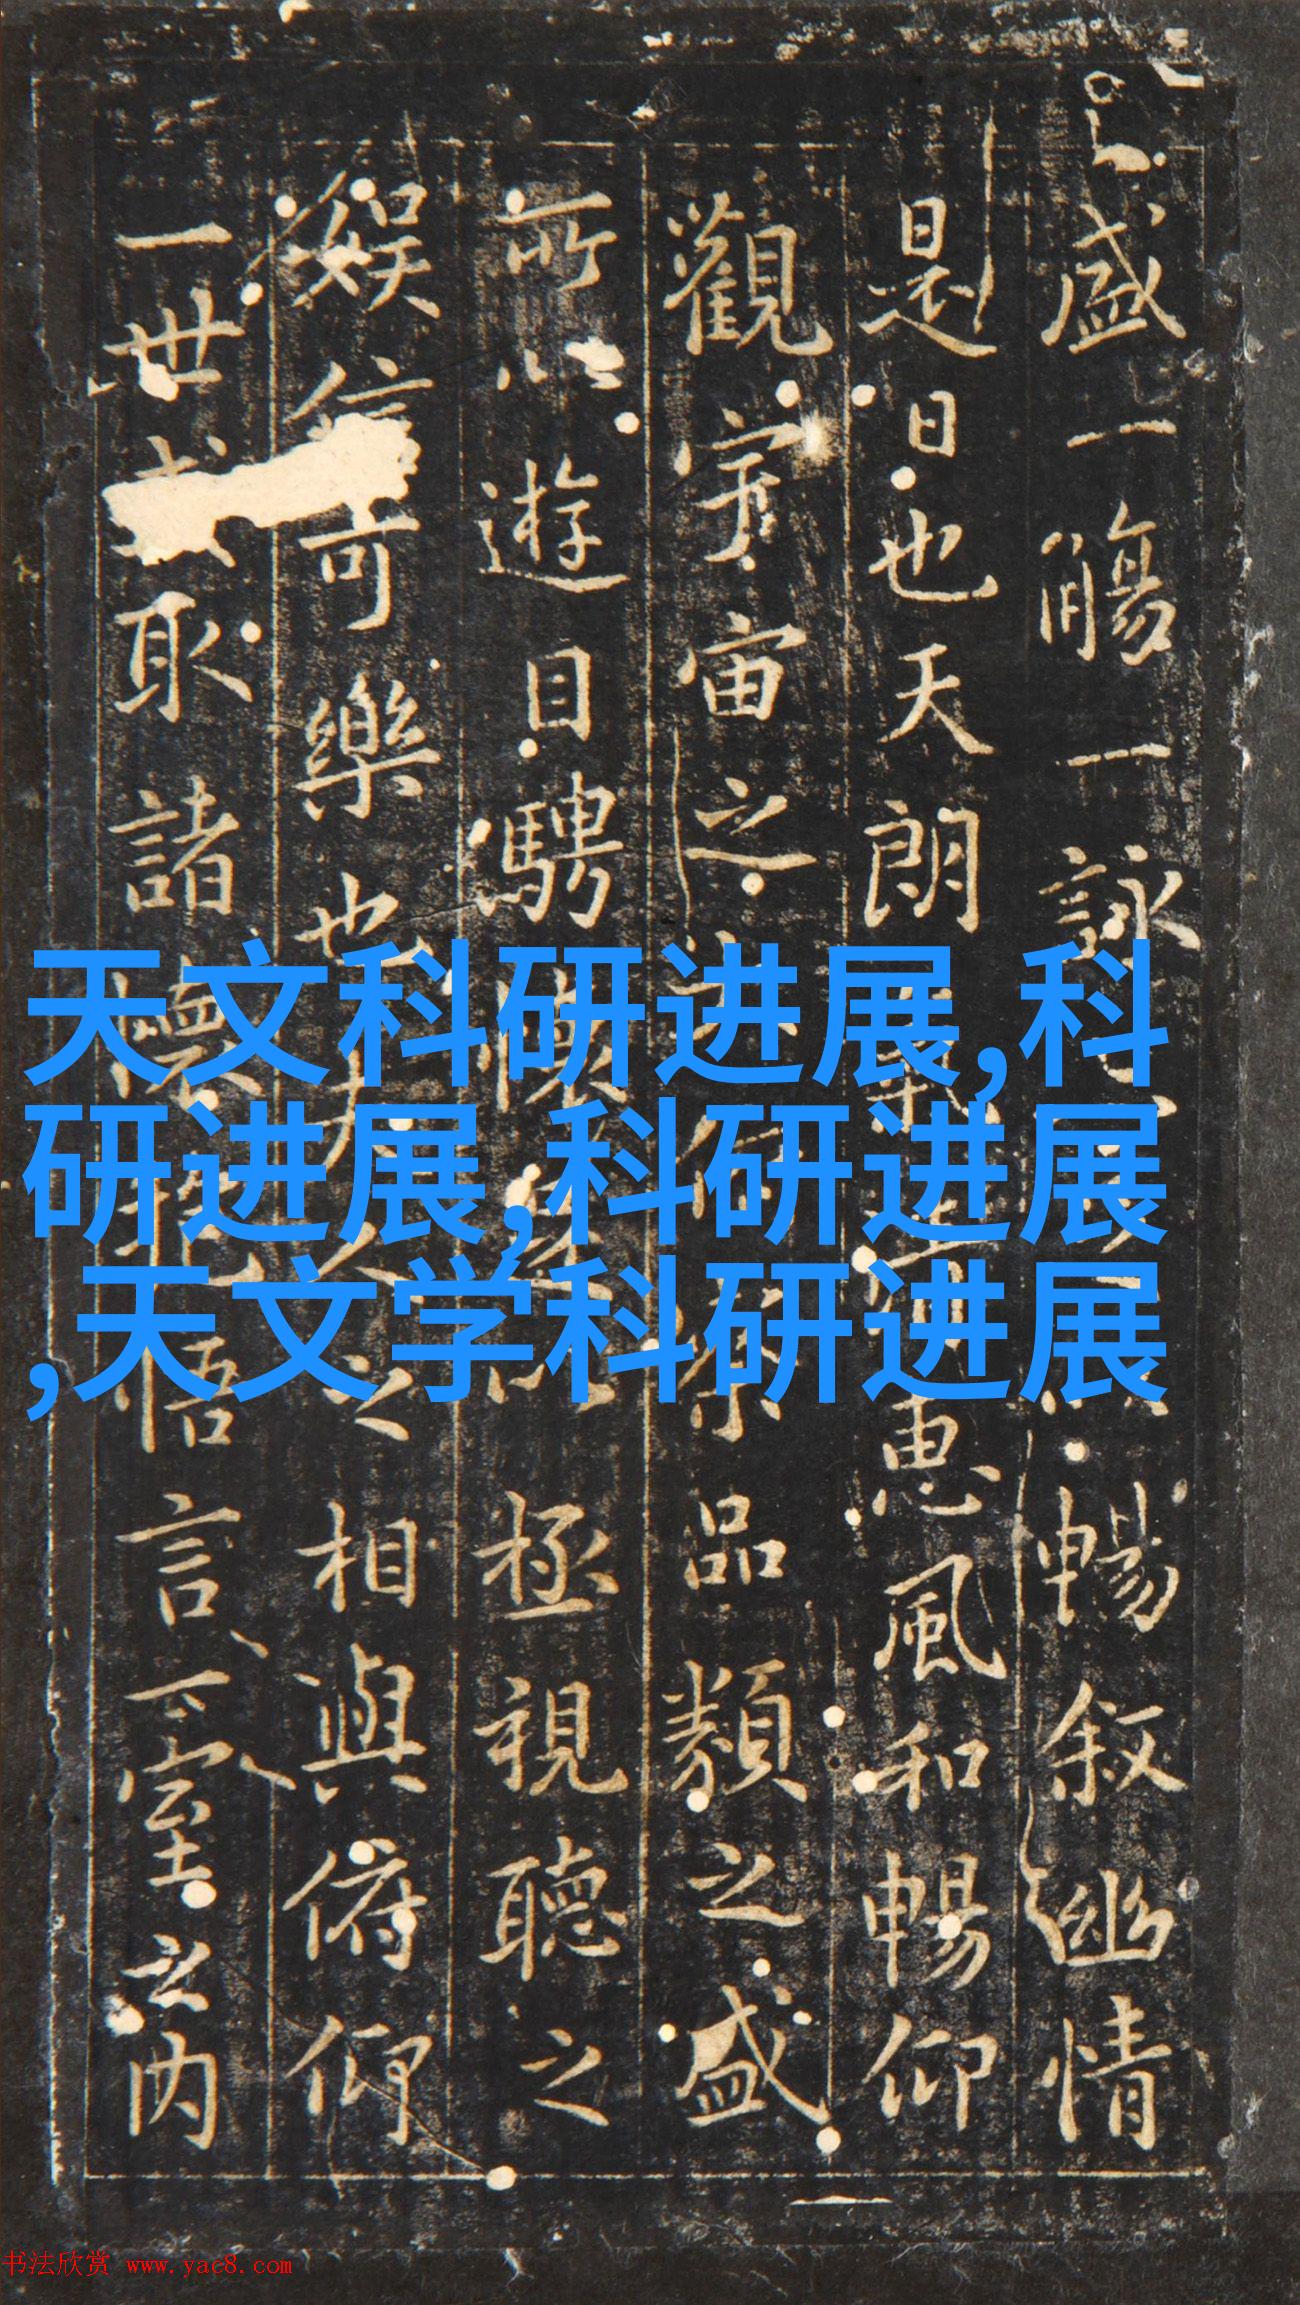 盛一觴一詠暢叙幽情
是日也天朗惠風和暢仰
觀宇宙之察品類之盛
所以遊目騁懷極視聽之
娛信可樂也夫人之相與俯仰
一世取諸懷抱悟言一室之內
天文科研进展,科
研进展,科研进展
,天文学科研进展
书法欣赏 www.yac8.com